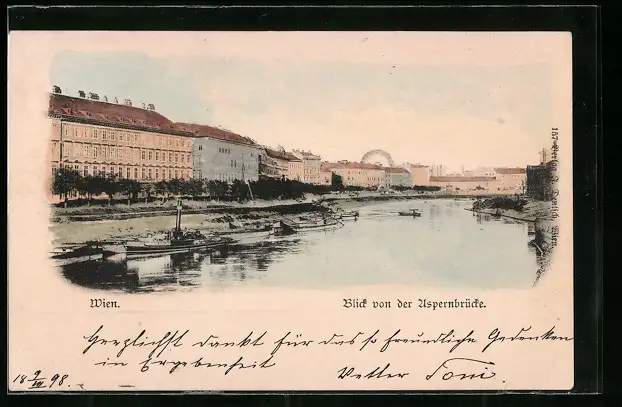 Wien.
Blick von der Aspernbrücke.
Herzlichst dankt für das so freundliche Gedenken
in Ergebenheit
Vetter Toni
18 9/VII 98.